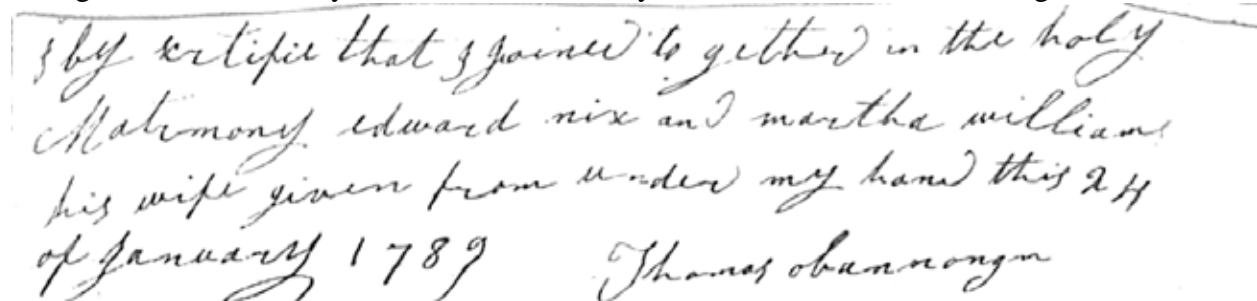 I by certifie that I joined to gether in the holy
Matrimony edward nix and martha williams
his wife given from under my hand this 24
of January 1789 Thomas obannongm